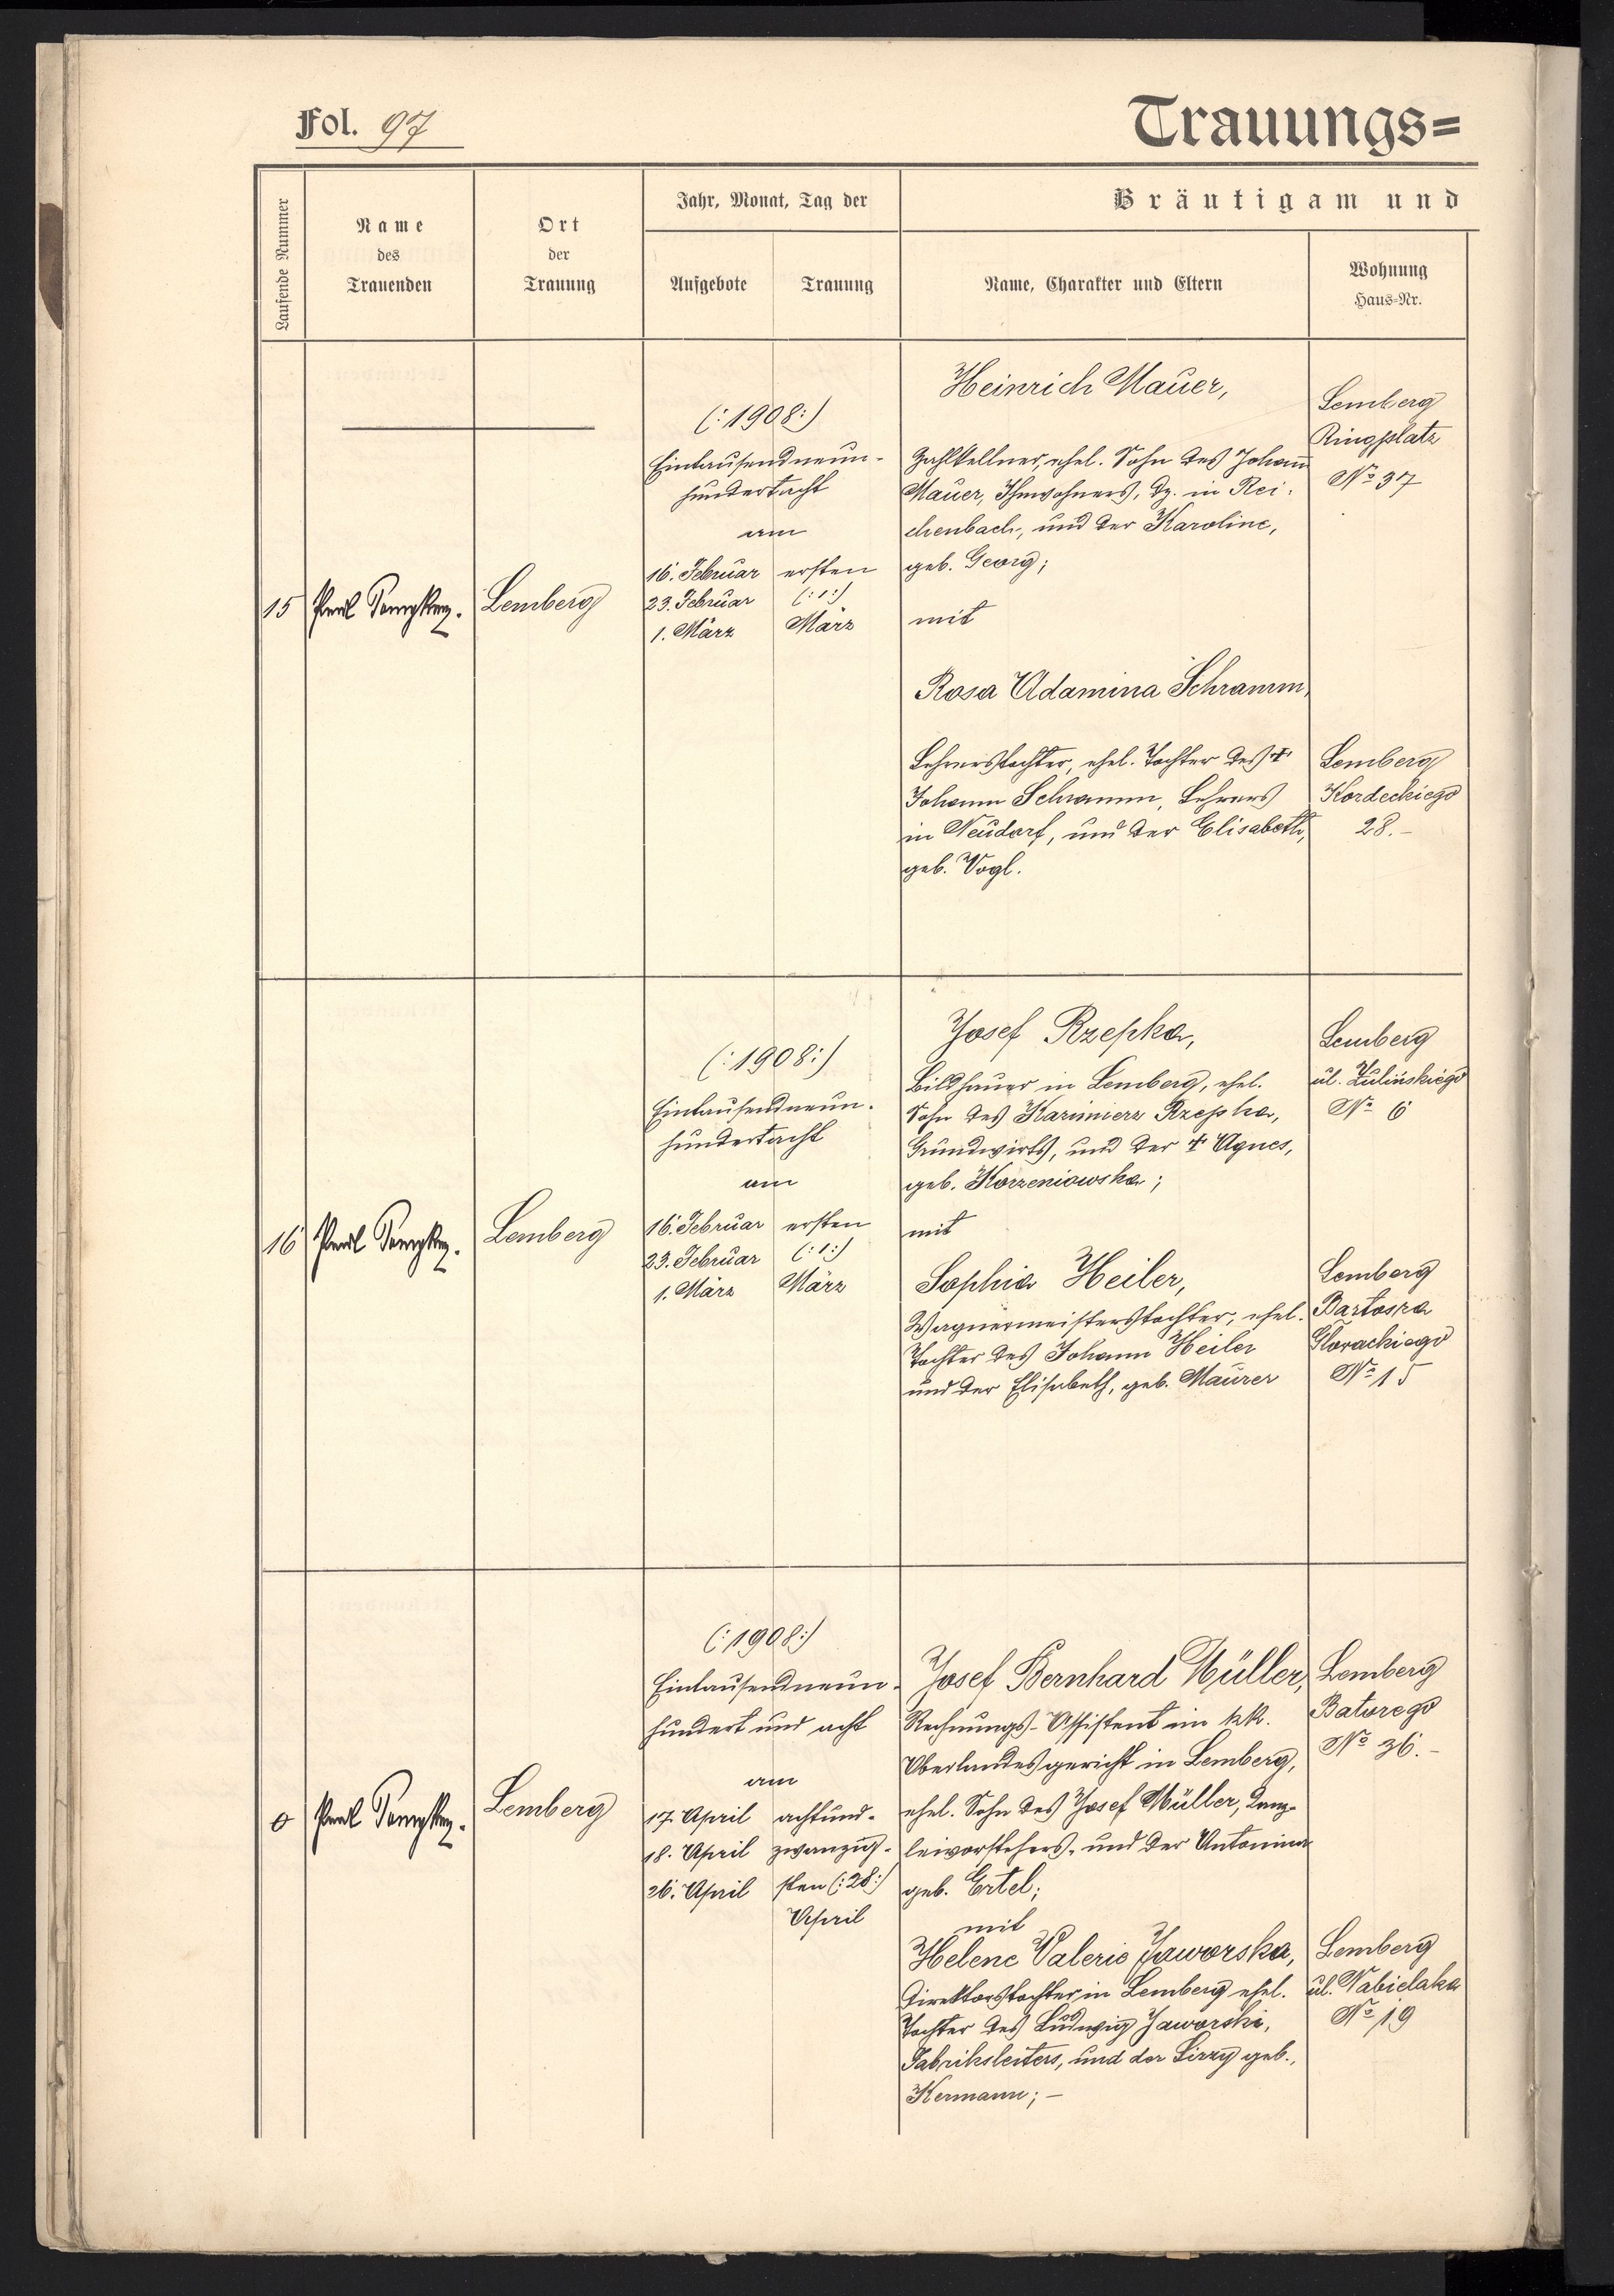 Fol. 97
Trauungs=
Laufende Nummer
Name
des
Trauenden
Ort
der
Trauung
Jahr, Monat, Tag der
Aufgebote
Trauung
Bräutigam und
Name, Charakter und Eltern
Wohnung
Haus-Nr.
15
Lemberg
(:1908:)
Eintausendneun-
hundertacht
am
16. Februar
23. Februar
1. März
ersten
(:1:)
März
Heinrich Mauer,
Zahlkellner, ehel. Sohn des Johann
Mauer, Ihnwohners, dz. in Rei-
chenbach, und der Karoline,
geb. Georg;
mit
Rosa Adamina Schramm,
Lehrerstochter, ehel. Tochter des †
Johann Schramm, Lehrers
in Neudorf, und der Elisabeth,
geb. Vogl.
Lemberg
Ringplatz
No 37
Lemberg
Kordeckiego
28.-
16
Lemberg
(:1908:)
Eintausendneun-
hundertacht
am
16. Februar
23. Februar
1. März
ersten
(:1:)
März
Josef Rzepka,
Bildhauer in Lemberg, ehel.
Sohn des Kazimierz Rzepka,
Grundwirts, und der † Agnes,
geb. Korzeniowska;
mit
Sophia Heiler,
Wagnermeisterstochter, ehel.
Tochter des Johann Heiler
und der Elisabeth, geb. Maurer
Lemberg
ul. Żulińskiego
No 6
Lemberg
Bartosza
Głowackiego
No 15
0
Lemberg
(:1908:)
Eintausendneun-
hundert und acht
am
17. April
18. April
26. April
achtund-
zwanzig-
sten (:28:)
April
Josef Bernhard Müller,
Rechnungs-Assistent im k.k.
Oberlandesgericht in Lemberg,
ehel. Sohn des Josef Müller, Kanz-
leivorstehers, und der Antonina
geb. Ertel;
mit
Helene Valerie Jaworska,
Direktorstochter in Lemberg ehel.
Tochter des Ludwig Jaworski,
Fabriksleiters, und der Lizzy geb.,
Kermann; —
Lemberg
Batorego
No 36.-
Lemberg
ul. Nabielaka
No 19